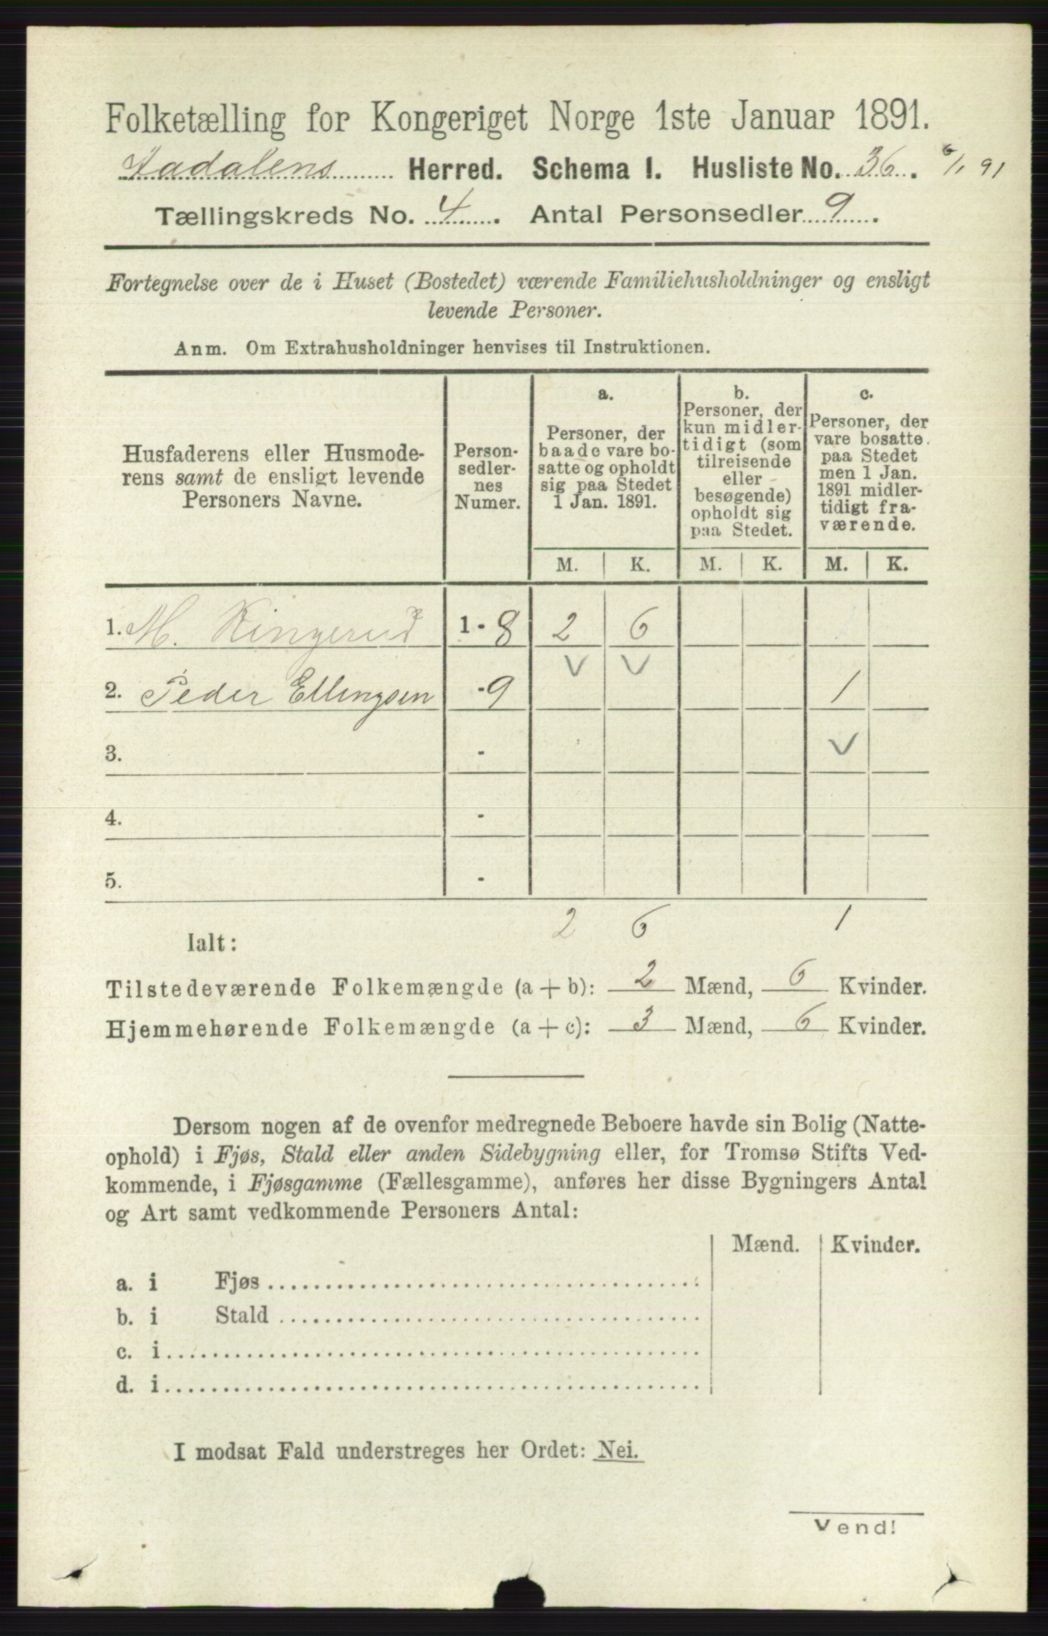 Folketælling for Kongeriget Norge 1ste Januar 1891.
Aadalens Herred. Schema I. Husliste No. 36. 6/1 91
Tællingskreds No. 4. Antal Personsedler 9.
Fortegnelse over de i Huset (Bostedet) værende Familiehusholdninger og ensligt
levende Personer.
Anm. Om Extrahusholdninger henvises til Instruktionen.
Husfaderens eller Husmode-
rens samt de ensligt levende
Personers Navne.
Person-
sedler-
nes
Numer.
a.
Personer, der
baade vare bo-
satte og opholdt
sig paa Stedet
1 Jan. 1891.
b.
Personer, der
kun midler-
tidigt (som
tilreisende
eller
besøgende)
opholdt sig
paa Stedet.
c.
Personer, der
vare bosatte
paa Stedet
men 1 Jan.
1891 midler-
tidigt fra-
værende.
M. K. M. K. M. K.
1. M. Ringerud 1 - 8 2 6
2. Peder Ellingsen - 9 1
3. -
4. -
5. -
Ialt: 2 6 1
Tilstedeværende Folkemængde (a + b): 2 Mænd, 6 Kvinder.
Hjemmehørende Folkemængde (a + c): 3 Mænd, 6 Kvinder.
Dersom nogen af de ovenfor medregnede Beboere havde sin Bolig (Natte-
ophold) i Fjøs, Stald eller anden Sidebygning eller, for Tromsø Stifts Ved-
kommende, i Fjøsgamme (Fællesgamme), anføres her disse Bygningers Antal
og Art samt vedkommende Personers Antal:
Mænd. Kvinder.
a. i Fjøs
b. i Stald
c. i
d. i
I modsat Fald understreges her Ordet: Nei.
Vend!